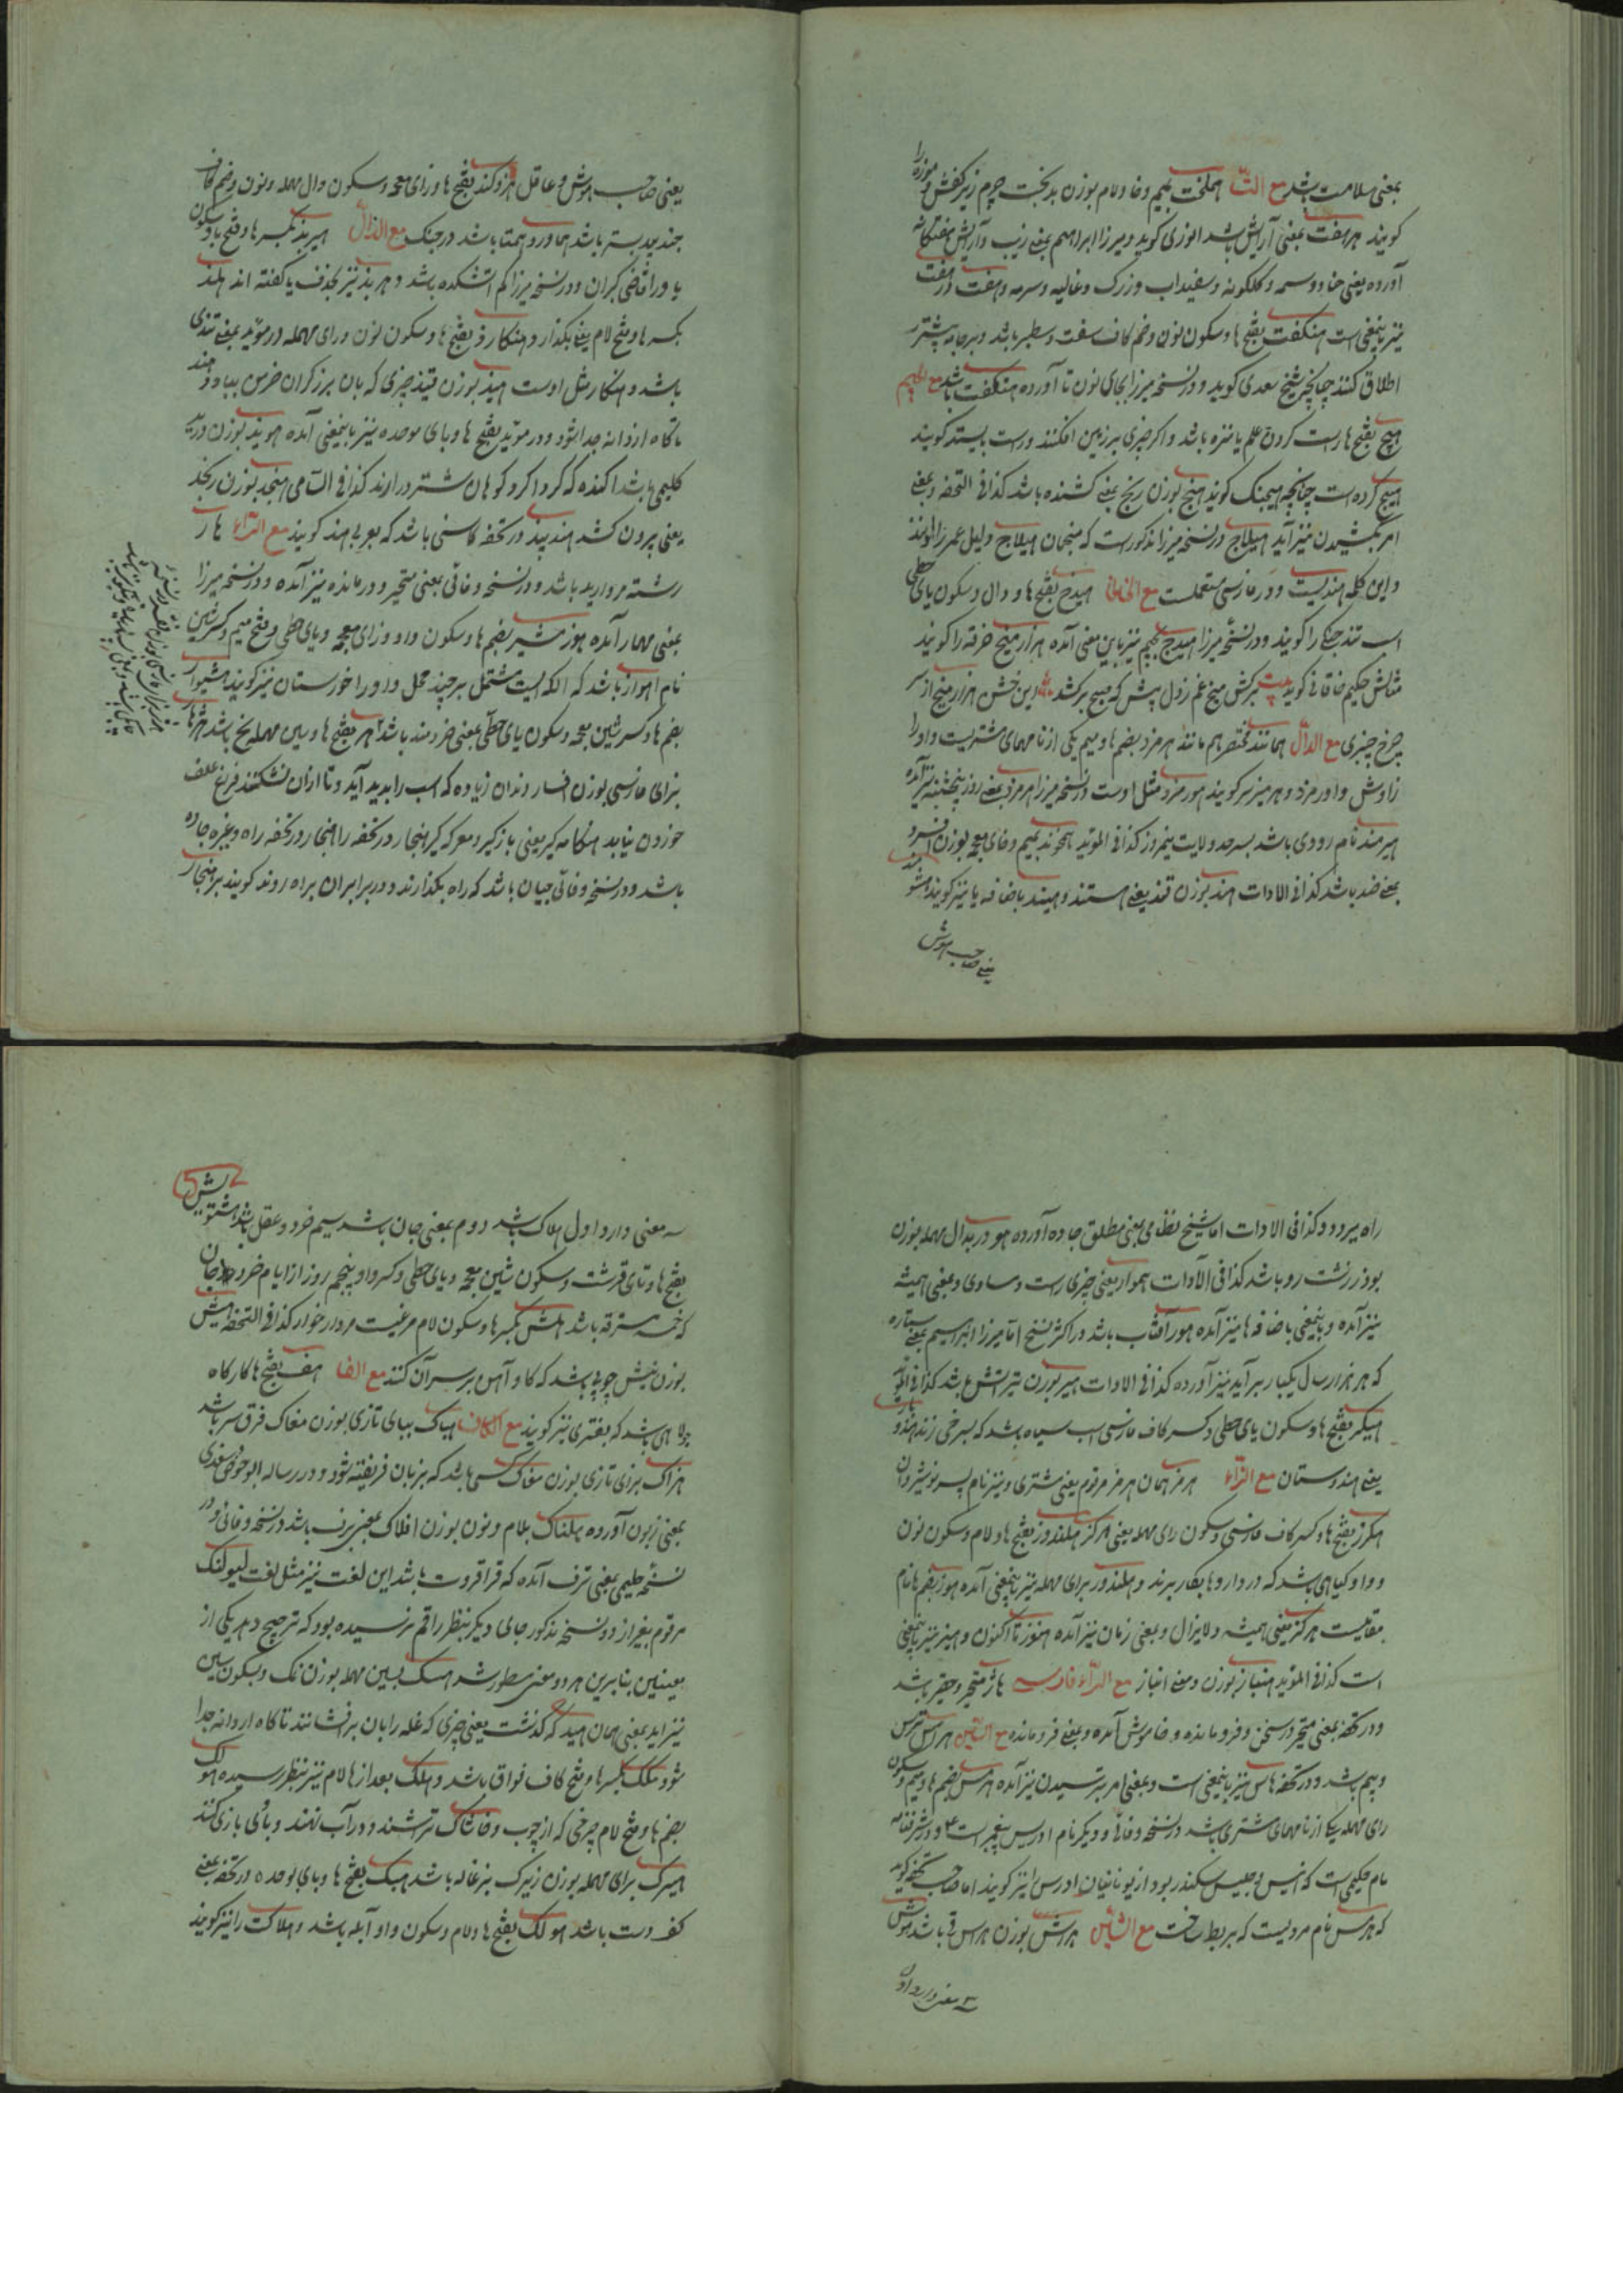 بمعنی سلامت باشد مع التا هملخت بمیم وخا ولام بوزن بدبخت چرم زیر کفش و موزه را
کویند هرهفت بمعنی آرایش باشد انوری کوید ومیرزا ابراهیم بمعنی زیب وآرایش هفتکانه
آورده یعنی حنا ووسمه وکلکونه وسفیداب وزرک وغالیه وسرمه وهفت درهفت
نیز باینمعنی است هنکفت بفتح ها وسکون نون وضم کاف سفت وسطبر باشد وبرجامه پیشتر
اطلاق کنند چنانچه شیخ سعدی کوید ودر نسخه میرزا بجای نون تا آورده هتکفت باشد مع الجیم
هیج بفتح ها راست کردن علم یا نیزه باشد واکر چیزی بر زمین افکنند وراست بایستد کویند
هیج کرده است چنانچه هیجنک کویند هنج بوزن رنج بمعنی کشنده باشد کذا فی التحفه وبمعنی
امر بکشیدن نیز آید هیلاج در نسخه میرزا مذکورست که منجمان هیلاج دلیل عمر را دانند
واین کلمه هندیست ودر فارسی مستعملست مع الخا هیدخ بفتح ها ودال وسکون یای حطی
اسب تند جنکی را کویند ودر نسخه میرزا هیدج بجیم نیز باین معنی آمده هزار میخ خرقه را کویند
مثالش حکیم خاقانی کوید بیت برکش میخ غم ز دل پیش که صبح برکشد این خشن هزار میخ از سر
چرخ چنبری مع الدال همانند مختصر هم مانند هرمزد بضم ها ومیم یکی از نامهای مشتریست واو را
زاوش واورمزد وهرمز نیز کویند هورمزد مثل اوست در نسخه میرزا هرمزد بمعنی روز پنجشنبه نیز آمده
هیرمند نام رودی باشد بسرحد ولایت نیمروز کذا فی المؤید
بمعنی ضد باشد کذا فی الادات هند بوزن قند یعنی هستند وهیند باضافه یا نیز کویند
یعنی صاحب هوش
یعنی صاحب هوش وعاقل هزوکند بفتح ها وزای معجمه وسکون دال مهمله ونون وضم کاف
جند بیدستر باشد هماورد همتا باشد در جنک مع الذال هیربد بکسر ها وفتح با وسکون
یا ورا قاضی کبران ودر نسخه میرزا کم آتشکده باشد وهربذ نیز بحذف یا کفته اند هلند
بکسر ها وفتح لام یعنی بکذارد هنکارد بفتح ها وسکون نون ورای مهمله در مؤید بمعنی تندی
باشد وهنکار مثل اوست هیذ بوزن قیذ چیزی که بان برزکران خرمن بباد دهند
تا کاه از دانه جدا شود ودر مؤید بفتح ها وبای موحده نیز باینمعنی آمده هوید بوزن دوید
کلیمی باشد اکنده که کرداکرد کوهان شتر درارند کذا فی السامی هنجد بوزن رنجد
یعنی بیرون کشد هندبید در تحفه کاسنی باشد که بعربی هند کویند مع الراء هار
رشته مروارید باشد ودر نسخه وفائی بمعنی متحیر ودرمانده نیز آمده ودر نسخه میرزا
بمعنی مهار آمده هوزمشیر بضم ها وسکون واو وزای معجمه ویای حطی وفتح میم وکسر شین
نام اهواز باشد که الکه ایست مشتمل بر چند محل واو را خوزستان نیز کویند هشیوار
بضم ها وکسر شین معجمه وسکون یای حطی بمعنی خردمند باشد هسر بفتح ها وسین مهمله یخ باشد هژهار
بزای فارسی بوزن افسار دندان زیاده که اسب را بدید آید وتا انرا نشکنند فربه علف
خوردن نیابد هنکامه کیر یعنی بازیکر ومعرکه کیر هنجار در تحفه راه هنجار در تحفه راه وغیره جاده
باشد ودر نسخه وفائی چنان باشد که راه بکذارند ودر برابر ان براه روند کویند بر هنجار
راه میرود وکذا فی الادات اما شیخ نظامی بمعنی مطلق جاده آورده هودر بدال مهمله بوزن
بوذر زشت رو باشد کذا فی الآدات هموار یعنی چیزی راست ومساوی وبمعنی همیشه
نیز آمده وباینمعنی باضافه ها نیز آمده هور آفتاب باشد در اکثر نسخ اما میرزا ابراهیم بمعنی ستاره
که هر هزار سال یکبار برآید نیز آورده کذا فی الادات هیر بوزن تیر اتش باشد کذا فی المؤید
هیکر بفتح ها وسکون یای حطی وکسر کاف فارسی اسب سیاه باشد که بسرخی زند هندوبار
یعنی هندوستان مع الزاء هرمز همان هرمز مرقوم یعنی مشتری ونیز نام پسر نوشیروان
هکرز بفتح ها وکسر کاف فارسی وسکون رای مهمله یعنی هرکز هلندوز بفتح ها ولام وسکون نون
وواو کیاهی باشد که در داروها بکار برند وهلندور برای مهمله نیز باینمعنی آمده هوز بضم ها نام
مقامیست هرکز یعنی همیشه ولایزال وبمعنی زمان نیز آمده هنوز تا اکنون وهنیز نیز باینمعنی
است کذا فی المؤید هنباز بوزن ومعنی انباز مع الزاء فارسیه هاژ متحیر وحقیر باشد
ودر تحفه بمعنی متحیر در سخن وفرومانده وخاموش آمده وبمعنی فرومانده مع السین هراس ترس
وبیم باشد ودر تحفه هاس نیز باینمعنی است وبمعنی امر بترسیدن نیز آمده هرمس بضم ها ومیم وسکون
رای مهمله یکی از نامهای مشتری باشد در نسخه وفائی ودیکر نام ادریس پیغمبر است ودر شرفنامه
نام حکیمی است که انیس وجلیس سکندر بود از یونانیان ادریس را نیز کویند اما صاحب تحفه کوید
که هرمس نام مردیست که بربط ساخت مع الشین هرش بوزن هرس قی باشد هوش
سه معنی دارد اول
سه معنی دارد اول هلاک باشد دوم بمعنی جان باشد سیم خرد وعقل باشد هشتویش
بفتح ها وتای قرشت وسکون شین معجمه ویای حطی وکسر واو پنجم روز از ایام خرد
که خمسه مسترقه باشد هلش بکسر ها وسکون لام مرغیست مردار خوار کذا فی التحفه هیش
بوزن نیش چوبی باشد که کاو آهن بر سر آن کنند مع الفا هف بفتح ها کارکاه
جولاهی باشد که بفتری نیز کویند مع الکاف هباک ببای تازی بوزن مغاک فرق سر باشد
هزاک بزای تازی بوزن مغاک کسی باشد که بزبان فریفته شود ودر رساله ابو حفص سغدی
بمعنی زبون آورده هلناک بلام ونون بوزن افلاک بمعنی برف باشد در نسخه وفائی ودر
نسخه حلیمی بمعنی ترف آمده که قراقروت باشد این لغت نیز مثل لغت لیولنک
مرقوم بغیر از دو نسخه مذکور جای دیکر بنظر راقم نرسیده بود که ترجیح دهد یکی از
معنیین بنابرین هر دو معنی مسطور شد هسک بسین مهمله بوزن نمک وبسکون سین
نیز اید بمعنی همان هید که کذشت یعنی چیزی که غله را بان برافشانند تا کاه از دانه جدا
شود هکک بکسر ها وفتح کاف فواق باشد وهلک بعد از ها لام نیز بنظر رسیده هولک
بضم ها وفتح لام چرخی که از چوب وخاشاک تراشند ودر آب نهند وبای بازی کنند
هیرک برای مهمله بوزن زیرک بزغاله باشد هبک بفتح ها وبای موحده در تحفه بمعنی
کف دست باشد هولک بفتح ها ولام وسکون واو آبله باشد وهلاکت را نیز کویند